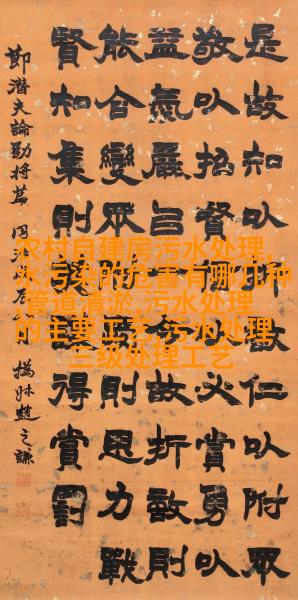 是故知以折敵仁以附眾
敬以招賢以必賞勇以
益氣嚴以令故折敵則
能合變眾附則思力戰
賢知集則得賞罰
節潛夫論勸將篇
撝叔趙之謙
农村自建房污水处理,
水污染的危害有哪几种
,管道清淤,污水处理
的主要工艺,污水处理
三级处理工艺